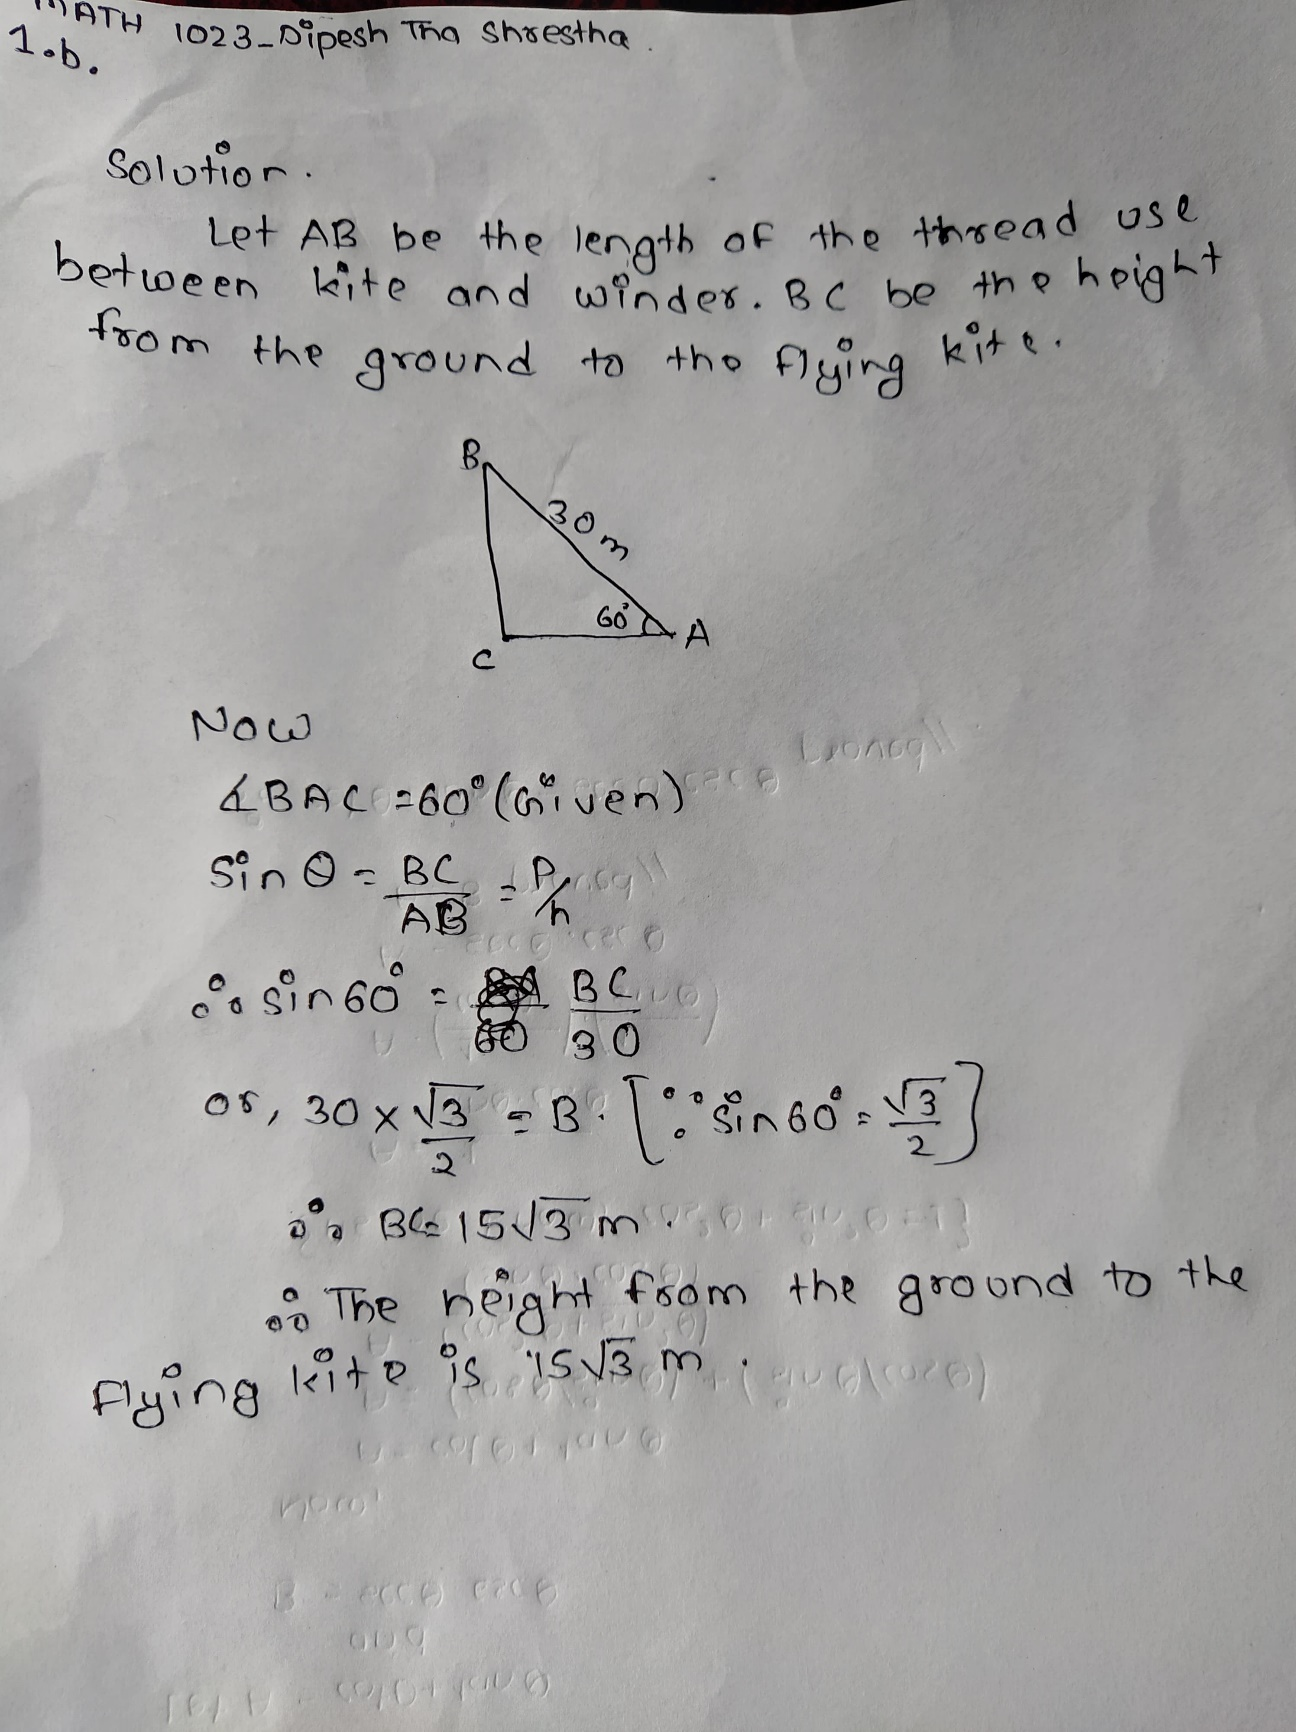 MATH 1023_Dipesh Tha Shrestha.
1.b.
Solution.
Let AB be the length of the thread use
between kite and winder. BC be the height
from the ground to the flying kite.
B
30m
60° A
C
Now
∡BAC=60°(Given)
Sin θ = BC/AB = P/h
∴ sin60° = BC/30
or, 30 × √3/2 = B. [∵ sin60° = √3/2]
∴ BC= 15√3 m.
∴ The height from the ground to the
flying kite is 15√3 m.